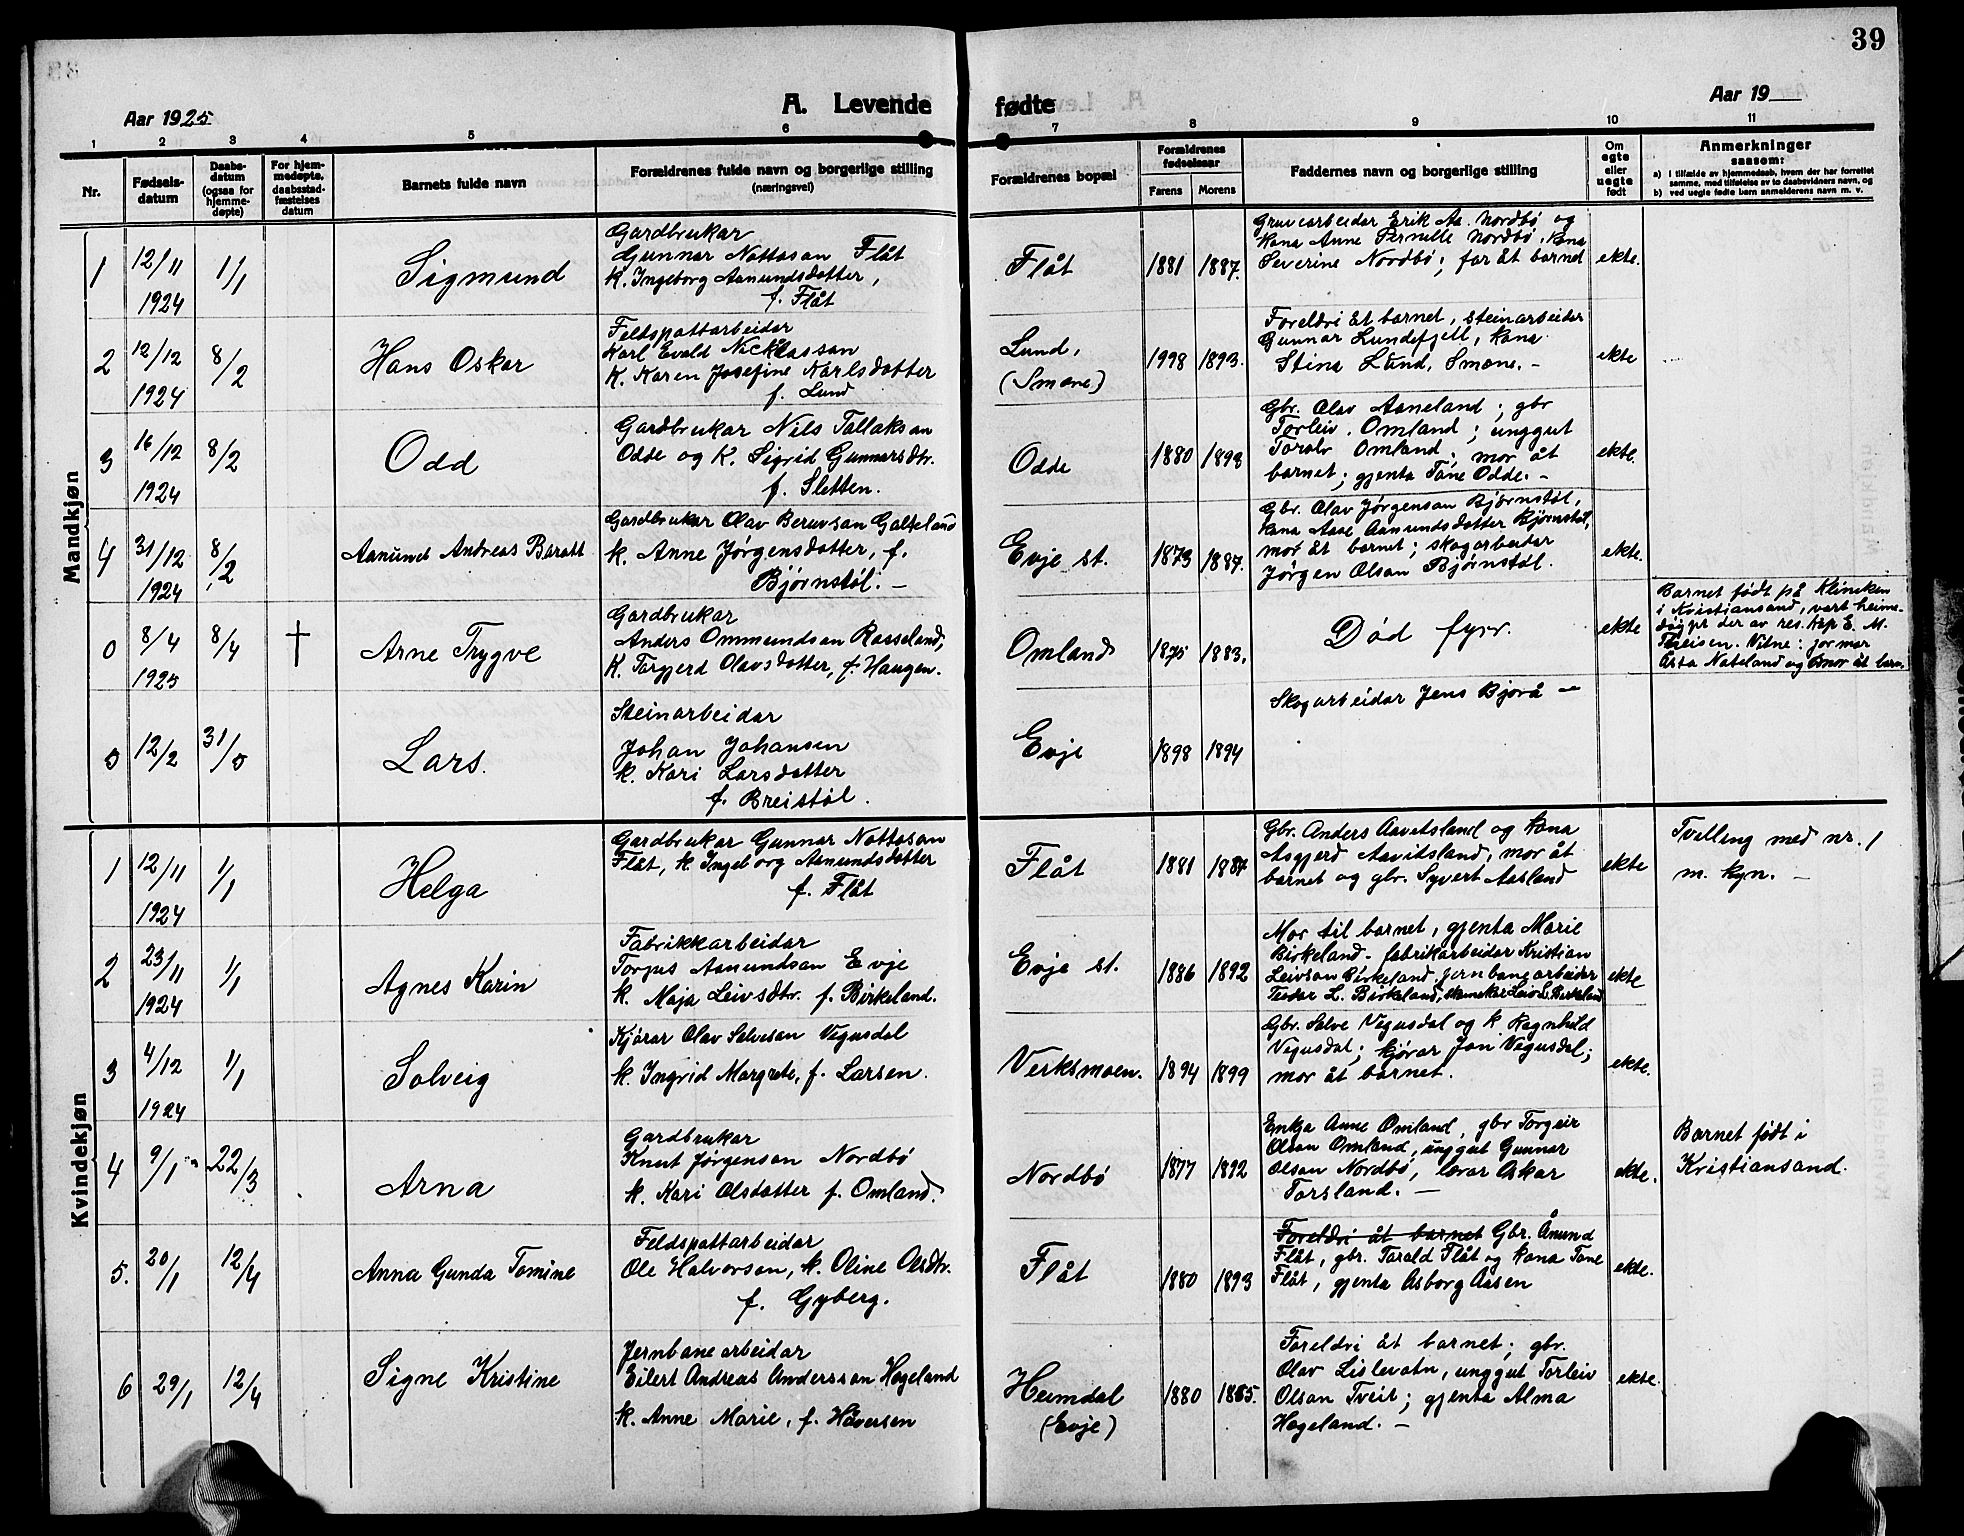 39
Aar 1925
A. Levende fødte
Aar 19
1 2 3 4 5 6 7 8 9 10 11
Nr.
Fødsels-
datum
Daabs-
datum
(ogsaa for
hjemme-
døpte)
For hjem-
medøpte,
daabsstad-
fæstelses
datum
Barnets fulde navn
Forældrenes fulde navn og borgerlige stilling
(næringsvei)
Forældrenes bopæl
Forældrenes
fødselsaar
Farens Morens
Faddernes navn og borgerlige stilling
Om
egte
eller
uegte
født
Anmerkninger
saasom:
a) i tilfælde av hjemmedaab, hvem der har forrettet
samme, med tilføielse av to daabsvidners navn, og
b) ved uegte fødte barn anmelderens navn m. v.
Mandkjøn
1
12/11
1924
1/1
Sigmund
Gardbrukar
Gunnar Nottosan Flåt
k. Ingeborg Aamundsdotter,
f. Flåt
Flåt
1881 1887.
Gruvearbeidar Erik Aa. Nordbø og
kona Anne Pernille Nordbø, kona
Severine Nordbø; far åt barnet
ekte.
2
12/12
1924
8/2
Hans Oskar
Feldspattarbeidar
Karl Evald Nicklasson
k. Karen Josefine Karlsdotter
f. Lund
Lund,
(Smone)
1998 1893.
Foreldri åt barnet, steinarbeidar
Gunnar Lundefjell, kona
Stina Lund, Smone. -
ekte
3
16/12
1924
8/2
Odd
Gardbrukar Nils Tallaksan
Odde og k. Sigrid Gunnarsdtr.
f. Sletten.
Odde
1880 1898
Gbr. Olav Aaneland; gbr
Torleiv Omland; unggut
Toralv Omland; mor åt
barnet; gjenta Tone Odde. -
ekte.
4
31/12
1924
8/2
Aanund Andreas Baratt
Gardbrukar Olav Beruvsan Galteland
k. Anne Jørgensdotter, f.
Bjørnstøl. -
Evje st.
1873 1887.
Gbr. Olav Jørgensan Bjørnstøl,
kona Aase Aanundsdotter Bjørnstøl,
mor åt barnet; skogarbeidar
Jørgen Olsan Bjørnstøl.
ekte.
0
8/4
1925
8/4
†
Arne Trygve
Gardbrukar
Anders Ommundsan Rosseland,
k. Torgjerd Olavsdotter, f. Haugen.
Omland
1875 1883.
Død fyrr.
ekte
Barnet født på Kliniken
i Kristiansand, vart heime-
døypt der av res. kap E. M.
Theisen. Vitne: jormor
Asta Nateland og mor åt barn.
0
12/2
31/0
Lars.
Steinarbeidar
Johan Johansen
k. Kari Larsdotter
f. Breistøl.
Evje
1898 1894
Skogarbeidar Jens Bjorå -
Kvindekjøn
1
12/11
1924
1/1
Helga
Gardbrukar Gunnar Nottosan
Flåt, k. Ingeborg Aamundsdotter
f. Flåt
Flåt
1881 1887
Gbr. Anders Aavitsland og kona
Asgjerd Aavitsland, mor åt
barnet og gbr. Syvert Aasland
ekte
Tvilling med nr. 1
m. kyn. -
2
23/11
1924
1/1
Agnes Karin
Fabrikkarbeidar
Torgus Aanundsan Evje
k. Maja Leivsdtr. f. Birkeland.
Evje st.
1886 1892
Mor til barnet, gjenta Marie
Birkeland. fabrikarbeidar Kristian
Leivsan Birkeland, jernbanearbeidar
Teodor L. Birkeland, skomakar Leiv L. Birkeland
ekte
3
4/12
1924
1/1
Solveig
Kjørar Olav Salvesan Vegusdal
k. Ingrid Margrete, f. Larsen.
Verksmoen.
1894 1899
Gbr. Salve Vegusdal og k Ragnhild
Vegusdal; kjørar Jon Vegusdal;
mor åt barnet.
ekte.
4
9/1
22/3
Arna
Gardbrukar
Knut Jørgensan Nordbø
k. Kari Olsdotter f. Omland.
Nordbø
1877 1892
Enkja Anne Omland, gbr Torgeir
Olsan Omland, unggut Gunnar
Olsan Nordbø, lærar Oskar
Torsland. -
ekte.
Barnet født i
Kristiansand.
5.
20/1
12/4
Anna Gunda Tomine
Feldspattarbeidar
Ole Halvorson, k. Oline Olsdtr.
f. Gyberg.
Flåt
1880 1893
Foreldri åt barnet Gbr. Ånund
Flåt, gbr. Torald Flåt og kona Tone
Flåt, gjenta Asborg Åsen
ekte.
6
29/1
12/4
Signe Kristine
Jernbanearbeidar
Eilert Andreas Anderssan Hogeland
k. Anne Marie, f. Håversen
Heimdal
(Evje)
1880 1885.
Foreldri åt barnet; gbr.
Olav Lislevatn, unggut Torleiv
Olsan Tveit; gjenta Alma
Hogeland. -
ekte.